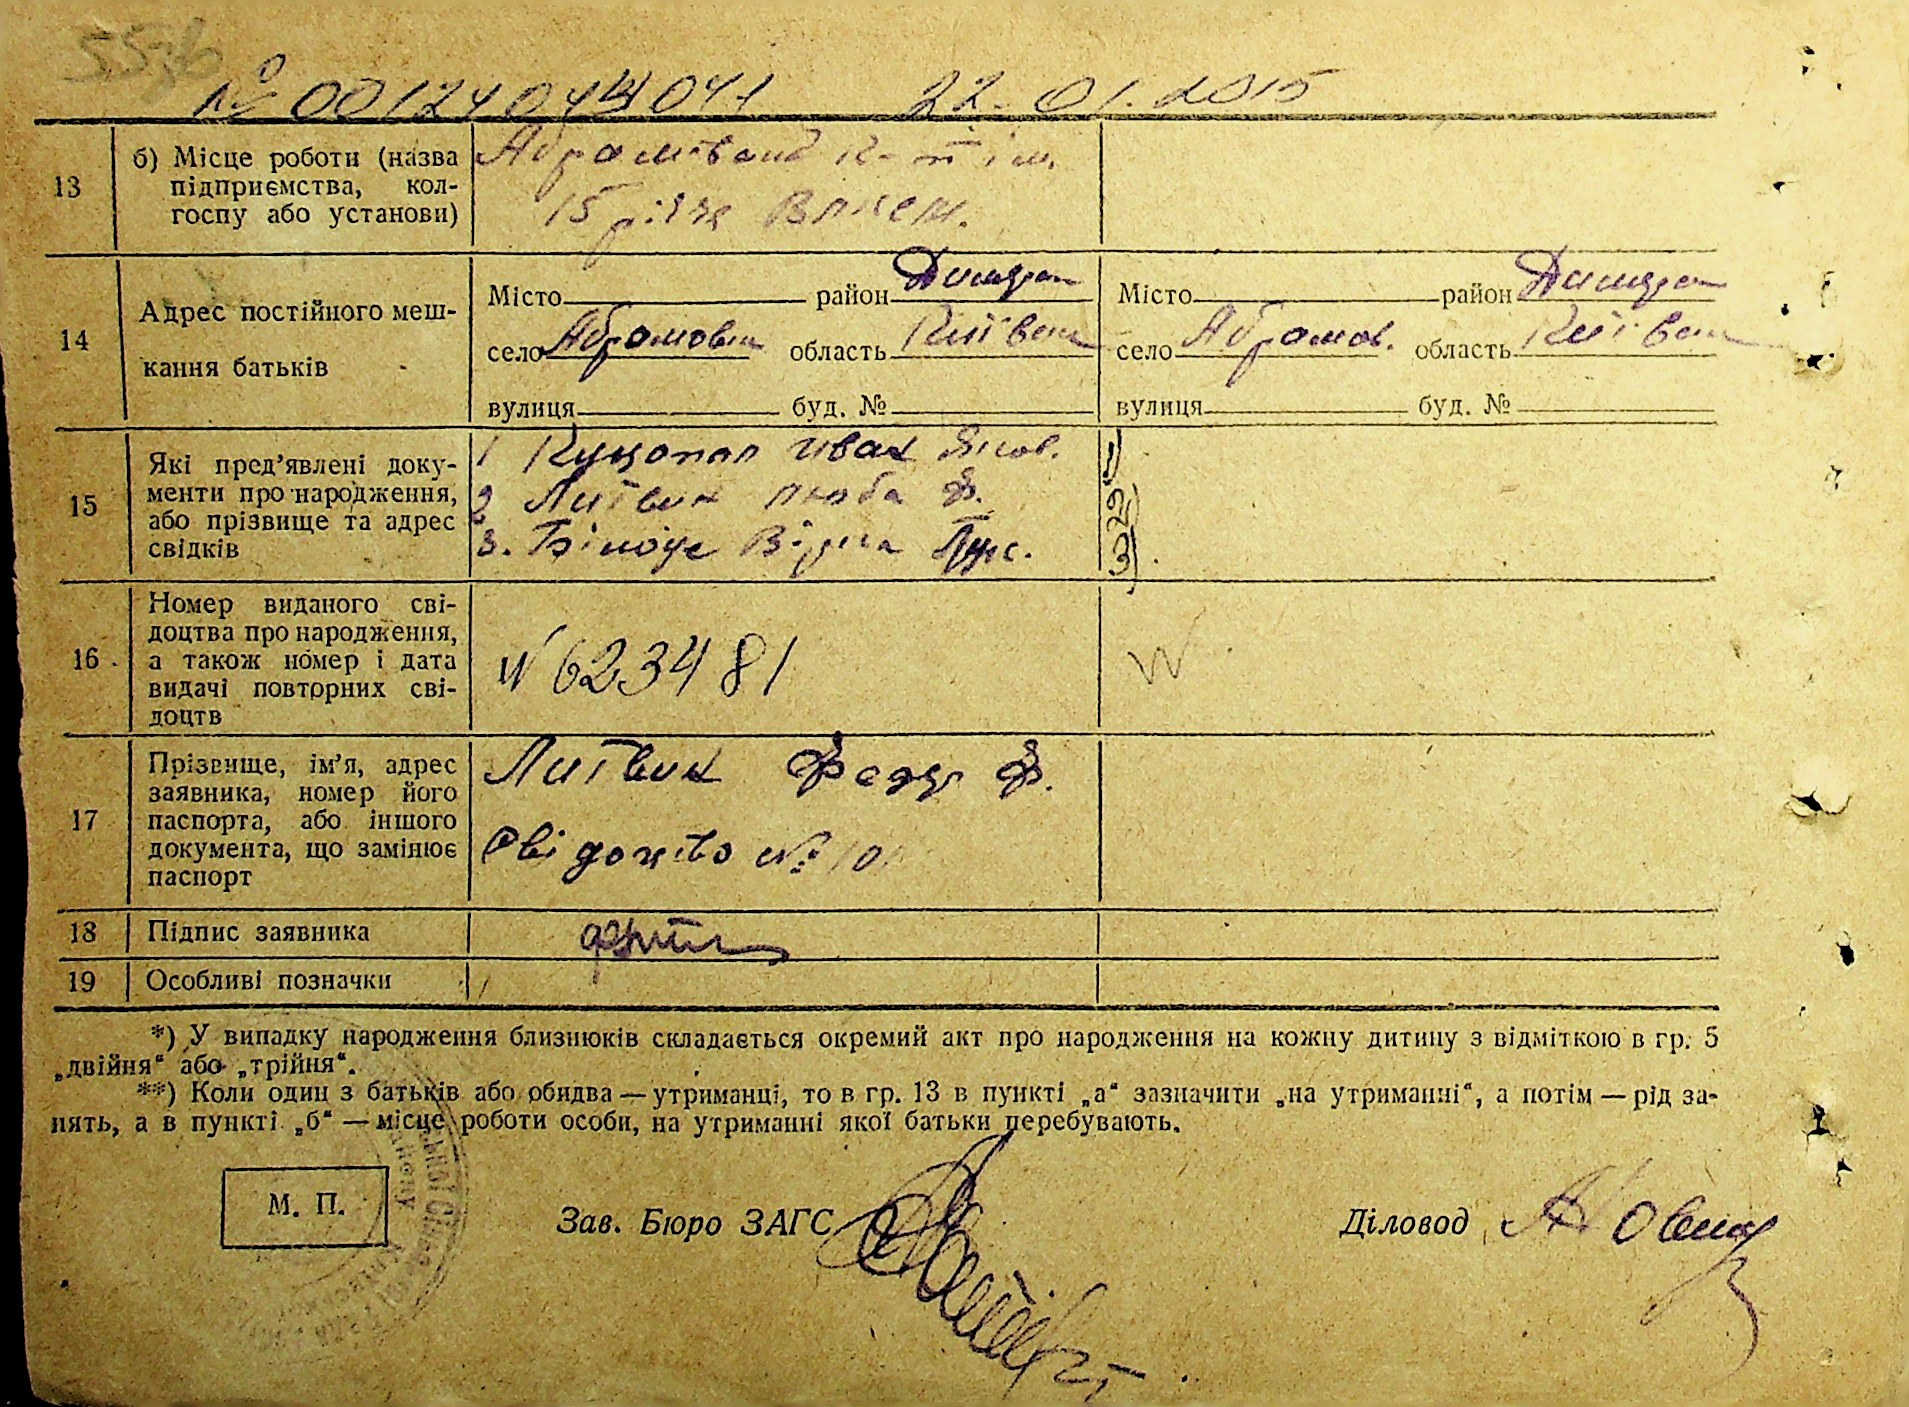 № 00124044041 22.01.2015
13 б) Місце роботи (назва
підприємства, кол-
госпу або установи)
к-т ім.
15 річчя Влксм.
14 Адрес постійного меш-
кання батьків
Місто район Димерськ
село Абрамовка область Київськ
вулиця буд. №
Місто район Димерськ
село Абрамов. область Київськ
вулиця буд. №
15 Які пред'явлені доку-
менти про народження,
або прізвище та адрес
свідків
1 Іван Яков. 1)
2 Литвин Люба Ф. 2)
3. Віра 3)
16 Номер виданого сві-
доцтва про народження,
а також номер і дата
видачі повторних сві-
доцтв
№ 623481
17 Прізвище, ім'я, адрес
заявника, номер його
паспорта, або іншого
документа, що замінює
паспорт
Литвин Федір Ф.
Свідоцтво № 10
18 Підпис заявника
19 Особливі позначки
*) У випадку народження близнюків складається окремий акт про народження на кожну дитину з відміткою в гр. 5
„двійня“ або „трійня“.
**) Коли один з батьків або обидва — утриманці, то в гр. 13 в пункті „а“ зазначити „на утриманні“, а потім — рід за-
нять, а в пункті „б“ — місце роботи особи, на утриманні якої батьки перебувають.
М. П.
Зав. Бюро ЗАГС
Діловод